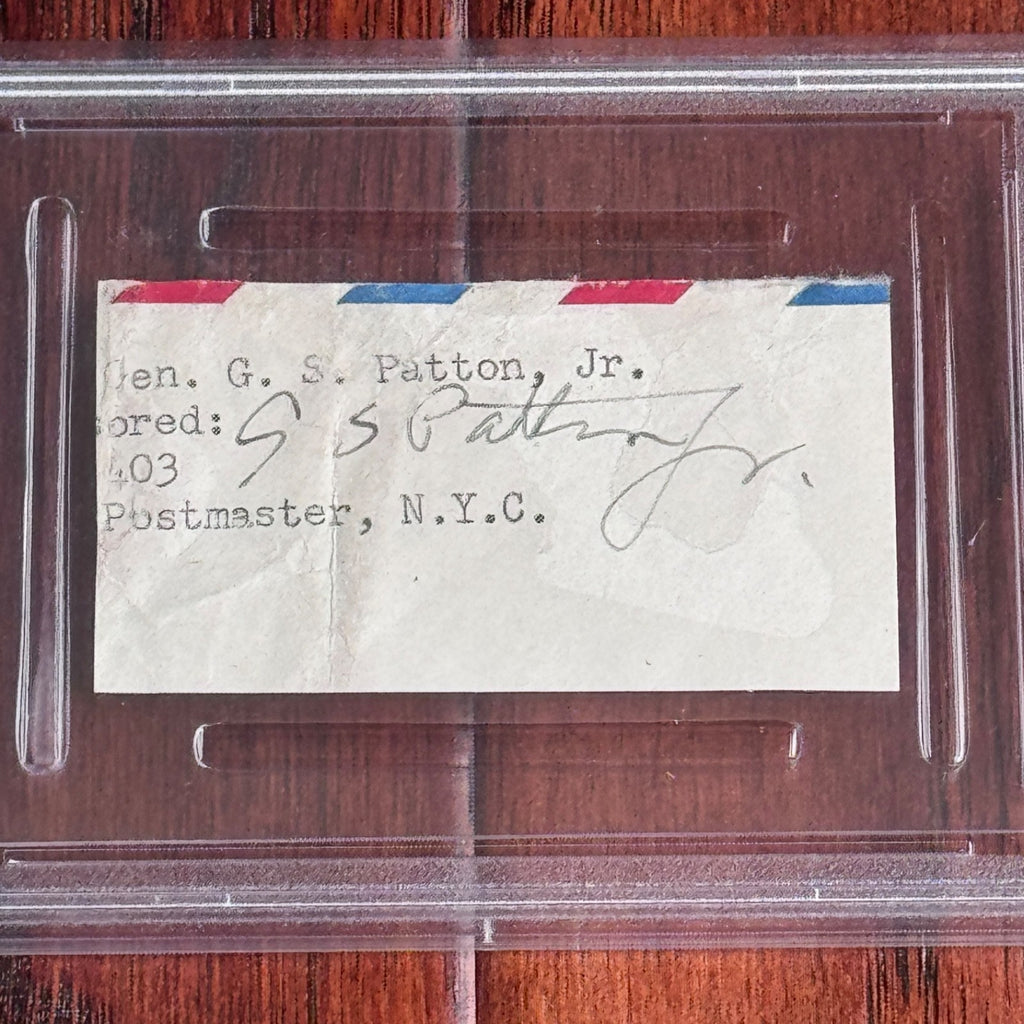 Gen. G. S. Patton, Jr.
ored: G S Patton Jr.
403
Postmaster, N.Y.C.